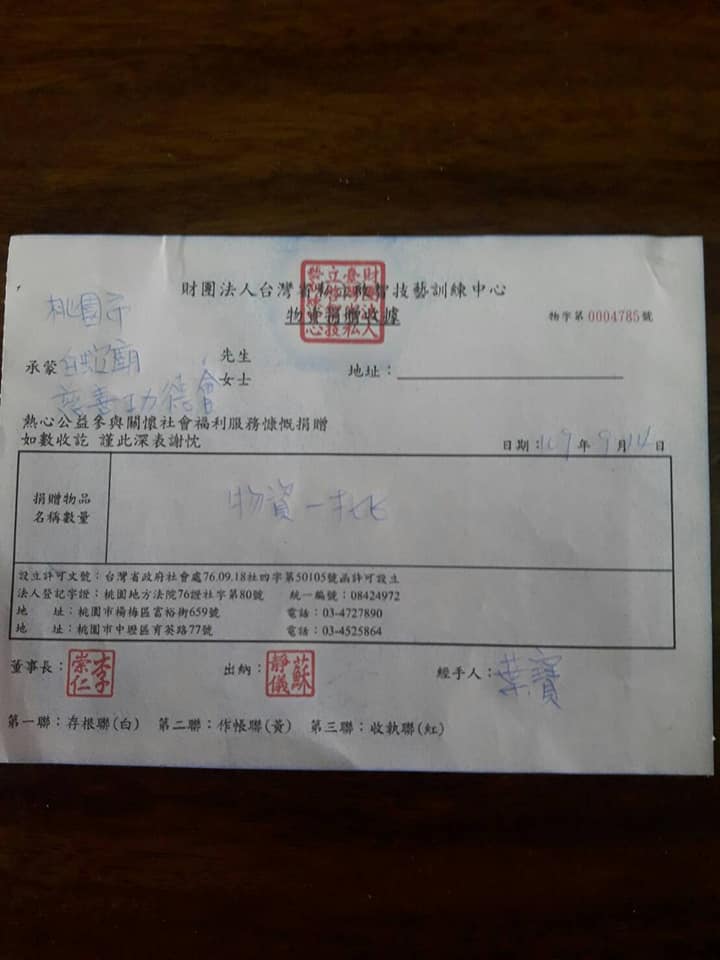 財團法人台灣省私立啟智技藝訓練中心
物資捐贈收據
物字第0004785號
桃園市
承蒙 白蛇廟 先生 女士
慈善功德會
地址：
熱心公益參與關懷社會福利服務慷慨捐贈
如數收訖 謹此深表謝忱
日期：109年9月14日
捐贈物品
名稱數量
物資一批
設立許可文號：台灣省政府社會處76.09.18社四字第50105號函許可設立
法人登記字證：桃園地方法院76證社字第80號 統一編號：08424972
地 址：桃園市楊梅區富裕街659號 電話：03-4727890
地 址：桃園市中壢區育英路77號 電話：03-4525864
董事長：李崇仁 出納：蘇靜儀 經手人：葉寶
第一聯：存根聯(白) 第二聯：作帳聯(黃) 第三聯：收執聯(紅)